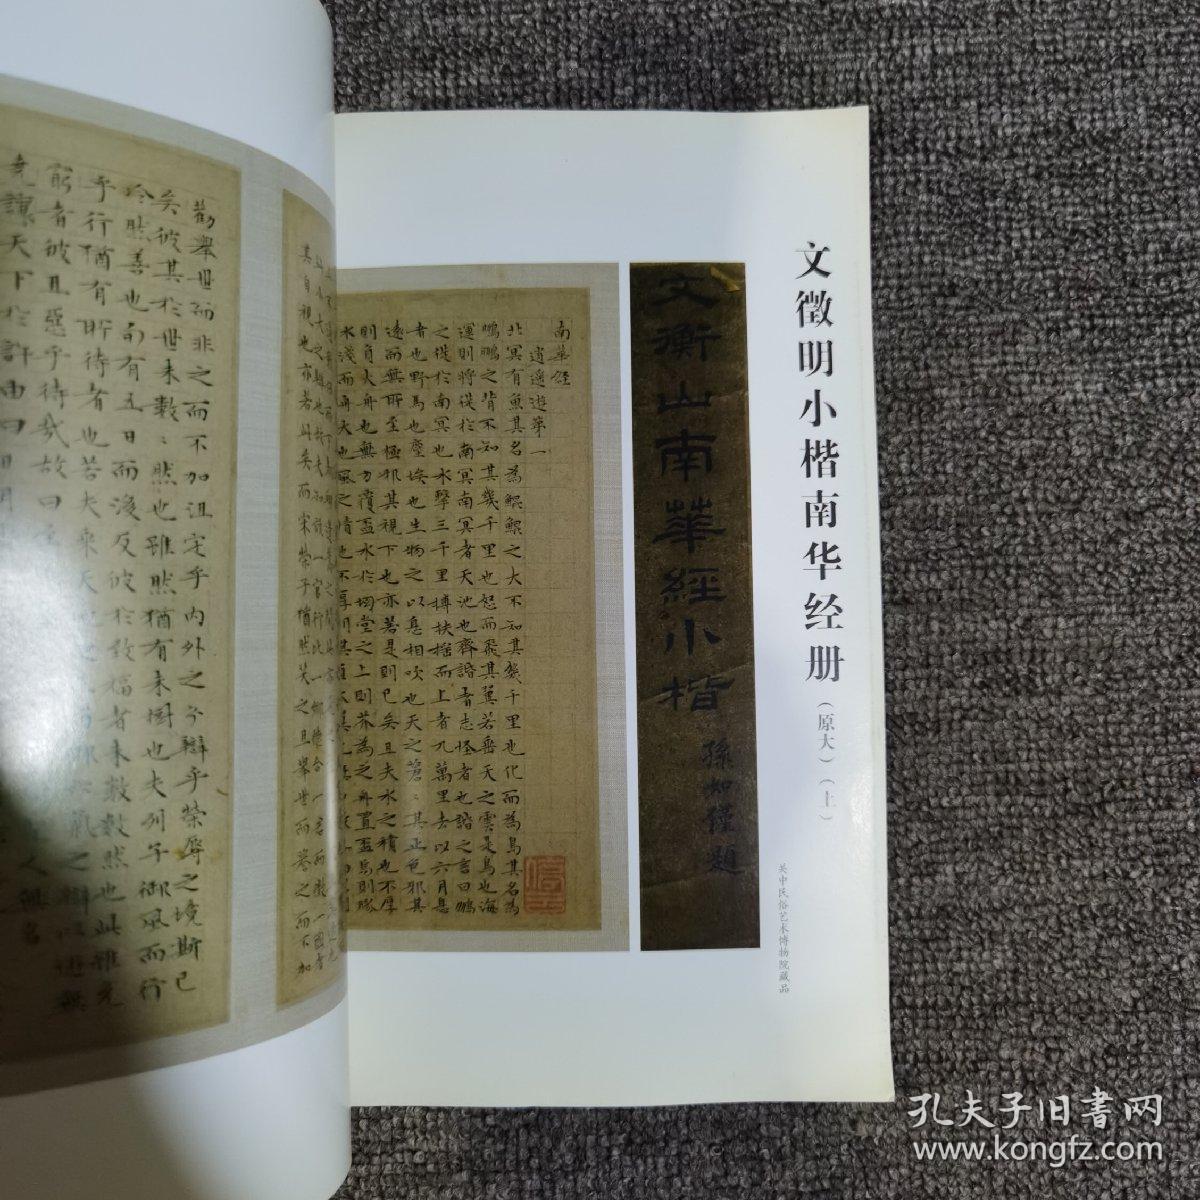 文徵明小楷南华经册(原大)(上)
关中民俗艺术博物院藏品
文衡山南華經小楷
孫如僅題
南華經
逍遙遊第一
北冥有魚其名為鯤鯤之大不知其幾千里也化而為鳥其名為
鵬鵬之背不知其幾千里也怒而飛其翼若垂天之雲是鳥也海
運則將徙於南冥南冥者天池也齊諧者志怪者也諧之言曰鵬
之徙於南冥也水擊三千里摶扶搖而上者九萬里去以六月息
者也野馬也塵埃也生物之以息相吹也天之蒼〻其正色邪其
遠而無所至極邪其視下也亦若是則已矣且夫水之積也不厚
則負大舟也無力覆盃水於坳堂之上則芥為之舟置盃焉則膠
水淺而舟大也風之積也不厚則其負大
其自視也亦若此矣而宋榮子猶然笑之且舉世而譽之而不加
勸舉世而非之而不加沮定乎內外之分辯乎榮辱之境斯已
矣彼其於世未數〻然也雖然猶有未樹也夫列子御風而行
泠然善也旬有五日而後反彼於致福者未數數然也此雖免
乎行猶有所待者也若夫乘天
窮者彼且惡乎待哉故曰
堯讓天下於許由曰日月
孔夫子旧书网
www.kongfz.com